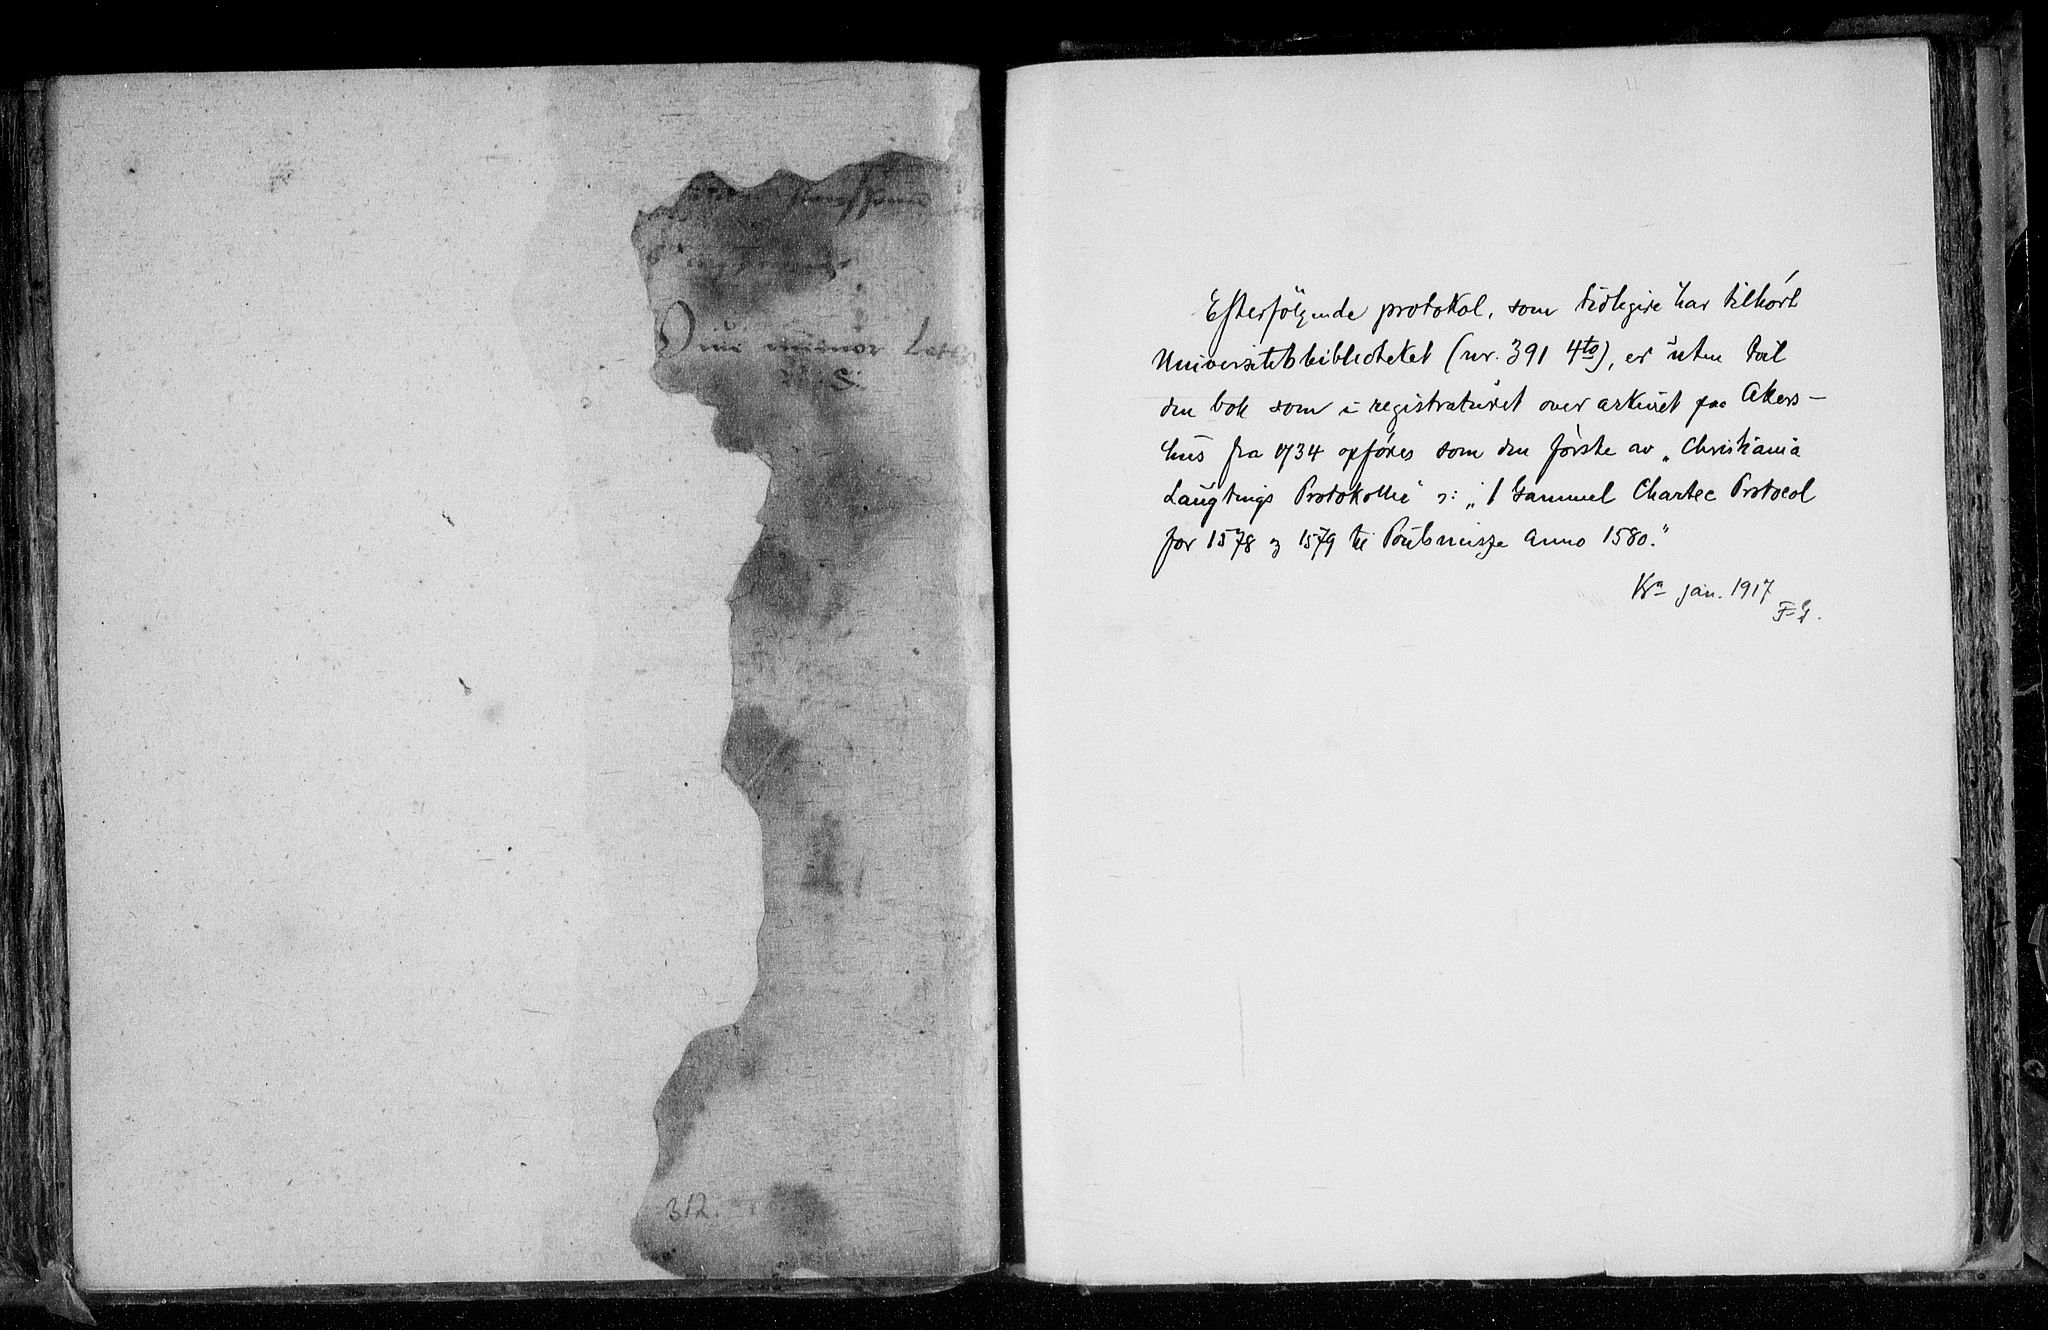 Qui minor
312.
Efterfölgende protokol, som tidligere har tilhørt
Universitetsbiblioteket (nr. 391 4to), er uten tvil
den bok som i registraturet over arkivet paa Akers-
hus fra 1734 opføres som den første av „Christiania
Laugtings Protokoller" ɔ: „1 Gammel Chartec Protocol
for 1578 og 1579 til Paulsmisse Anno 1580."
Kra jan. 1917
F G.